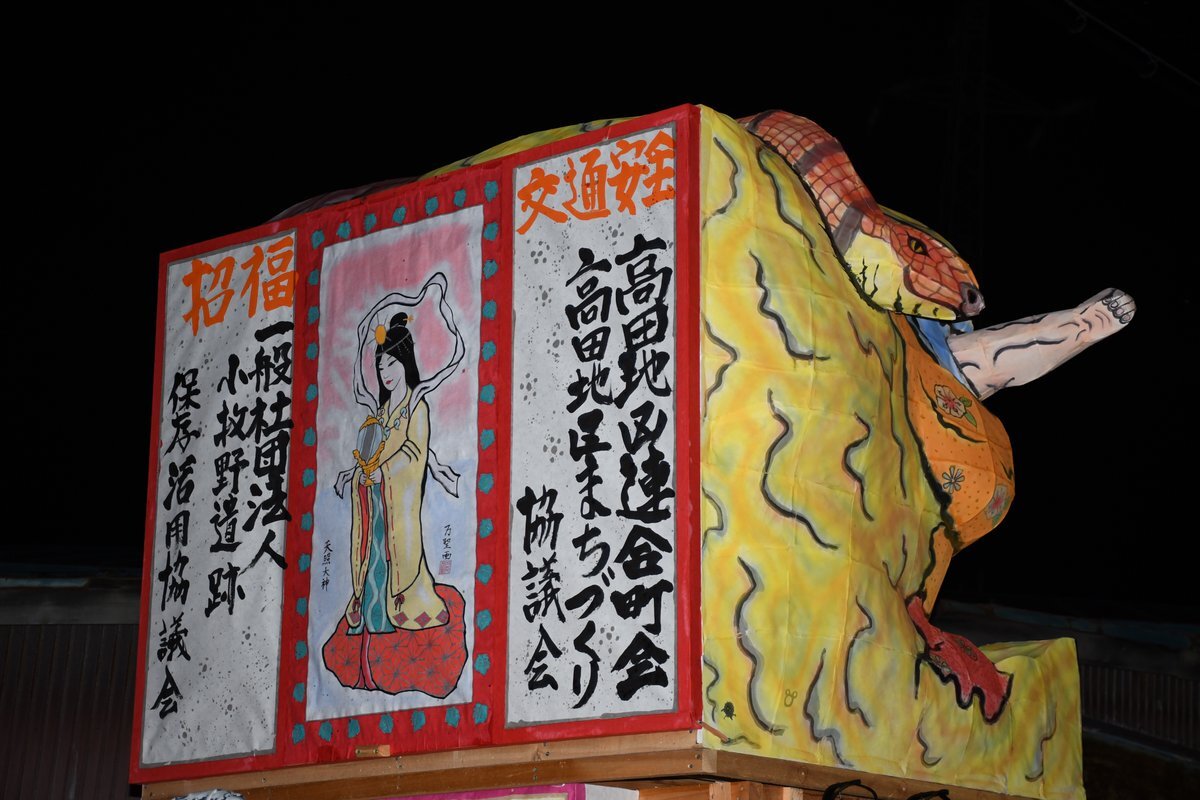 交通安全
高田地区連合町会
高田地区まちづくり
協議会
天照大神
招福
一般社団法人
小牧野遺跡
保存活用協議会